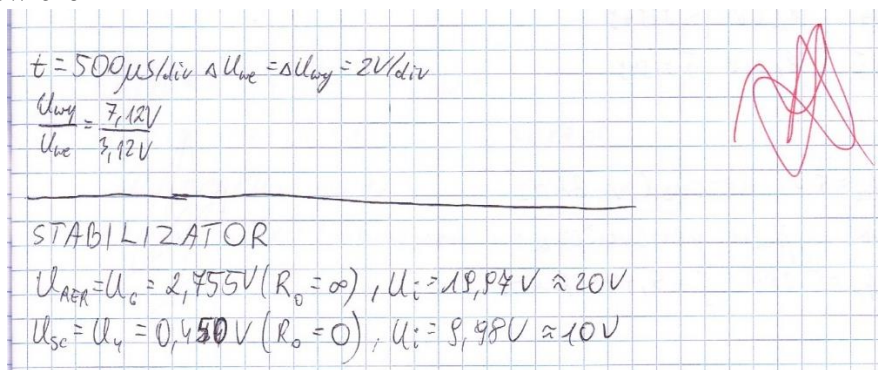 t = 500μs/div ΔUwe = ΔUwy = 2V/div
Uwy/Uwe = 7,12V/3,12V
STABILIZATOR
UAER = U6 = 2,755V (Ro = ∞), Ui = 19,97V ≈ 20V
Usc = U4 = 0,450V (Ro = 0), Ui = 9,98V ≈ 10V